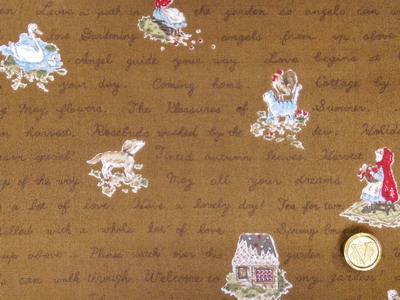 ! Leave a path in the garden so angels can
love Gardening angels from up above
Angel guide your way. Love begins at
your day. Coming home. Cottage by
May, flowers. The Pleasures of Summer,
harvest, Rosebuds washed by the dew. Holida
special! Tinted autumn leaves. Harvest
up of the way. May all your dreams
a lot of love. Have a lovely day! Tea for two,
filled with a whole lot of love. Spring
up above. Please watch over this garden
can walk through. Welcome to my garden!